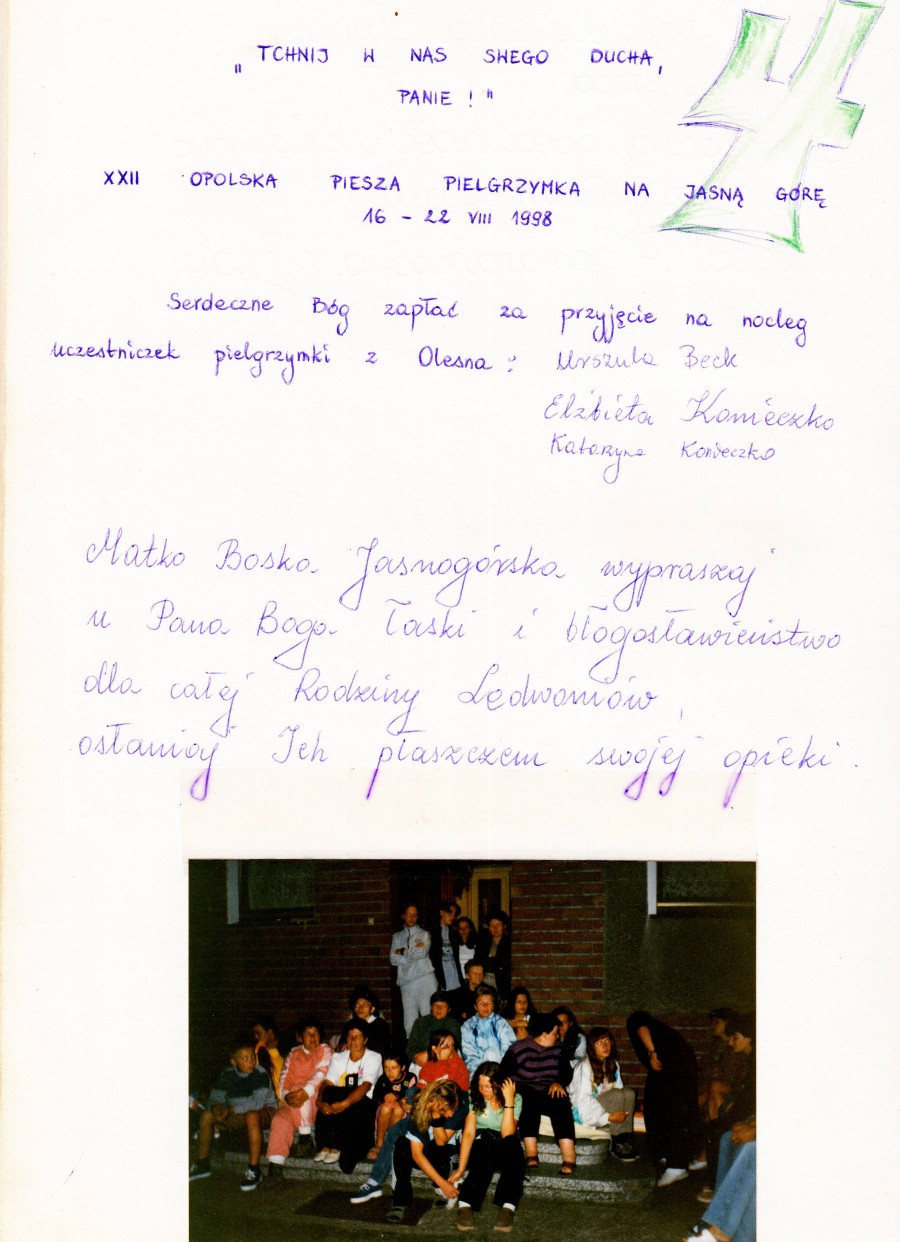 „TCHNIJ W NAS SWEGO DUCHA,
PANIE !"
XXII OPOLSKA PIESZA PIELGRZYMKA NA JASNĄ GÓRĘ
16 - 22 VIII 1998
Serdeczne Bóg zapłać za przyjęcie na nocleg
uczestniczek pielgrzymki z Olesna: Urszula Beck
Elżbieta Konieczko
Katarzyna Konieczko
Matko Boska Jasnogórska wypraszaj
u Pana Boga Łaski i błogosławieństwo
dla całej Rodziny Ledwoniów,
osłaniaj Ich płaszczem swojej opieki.